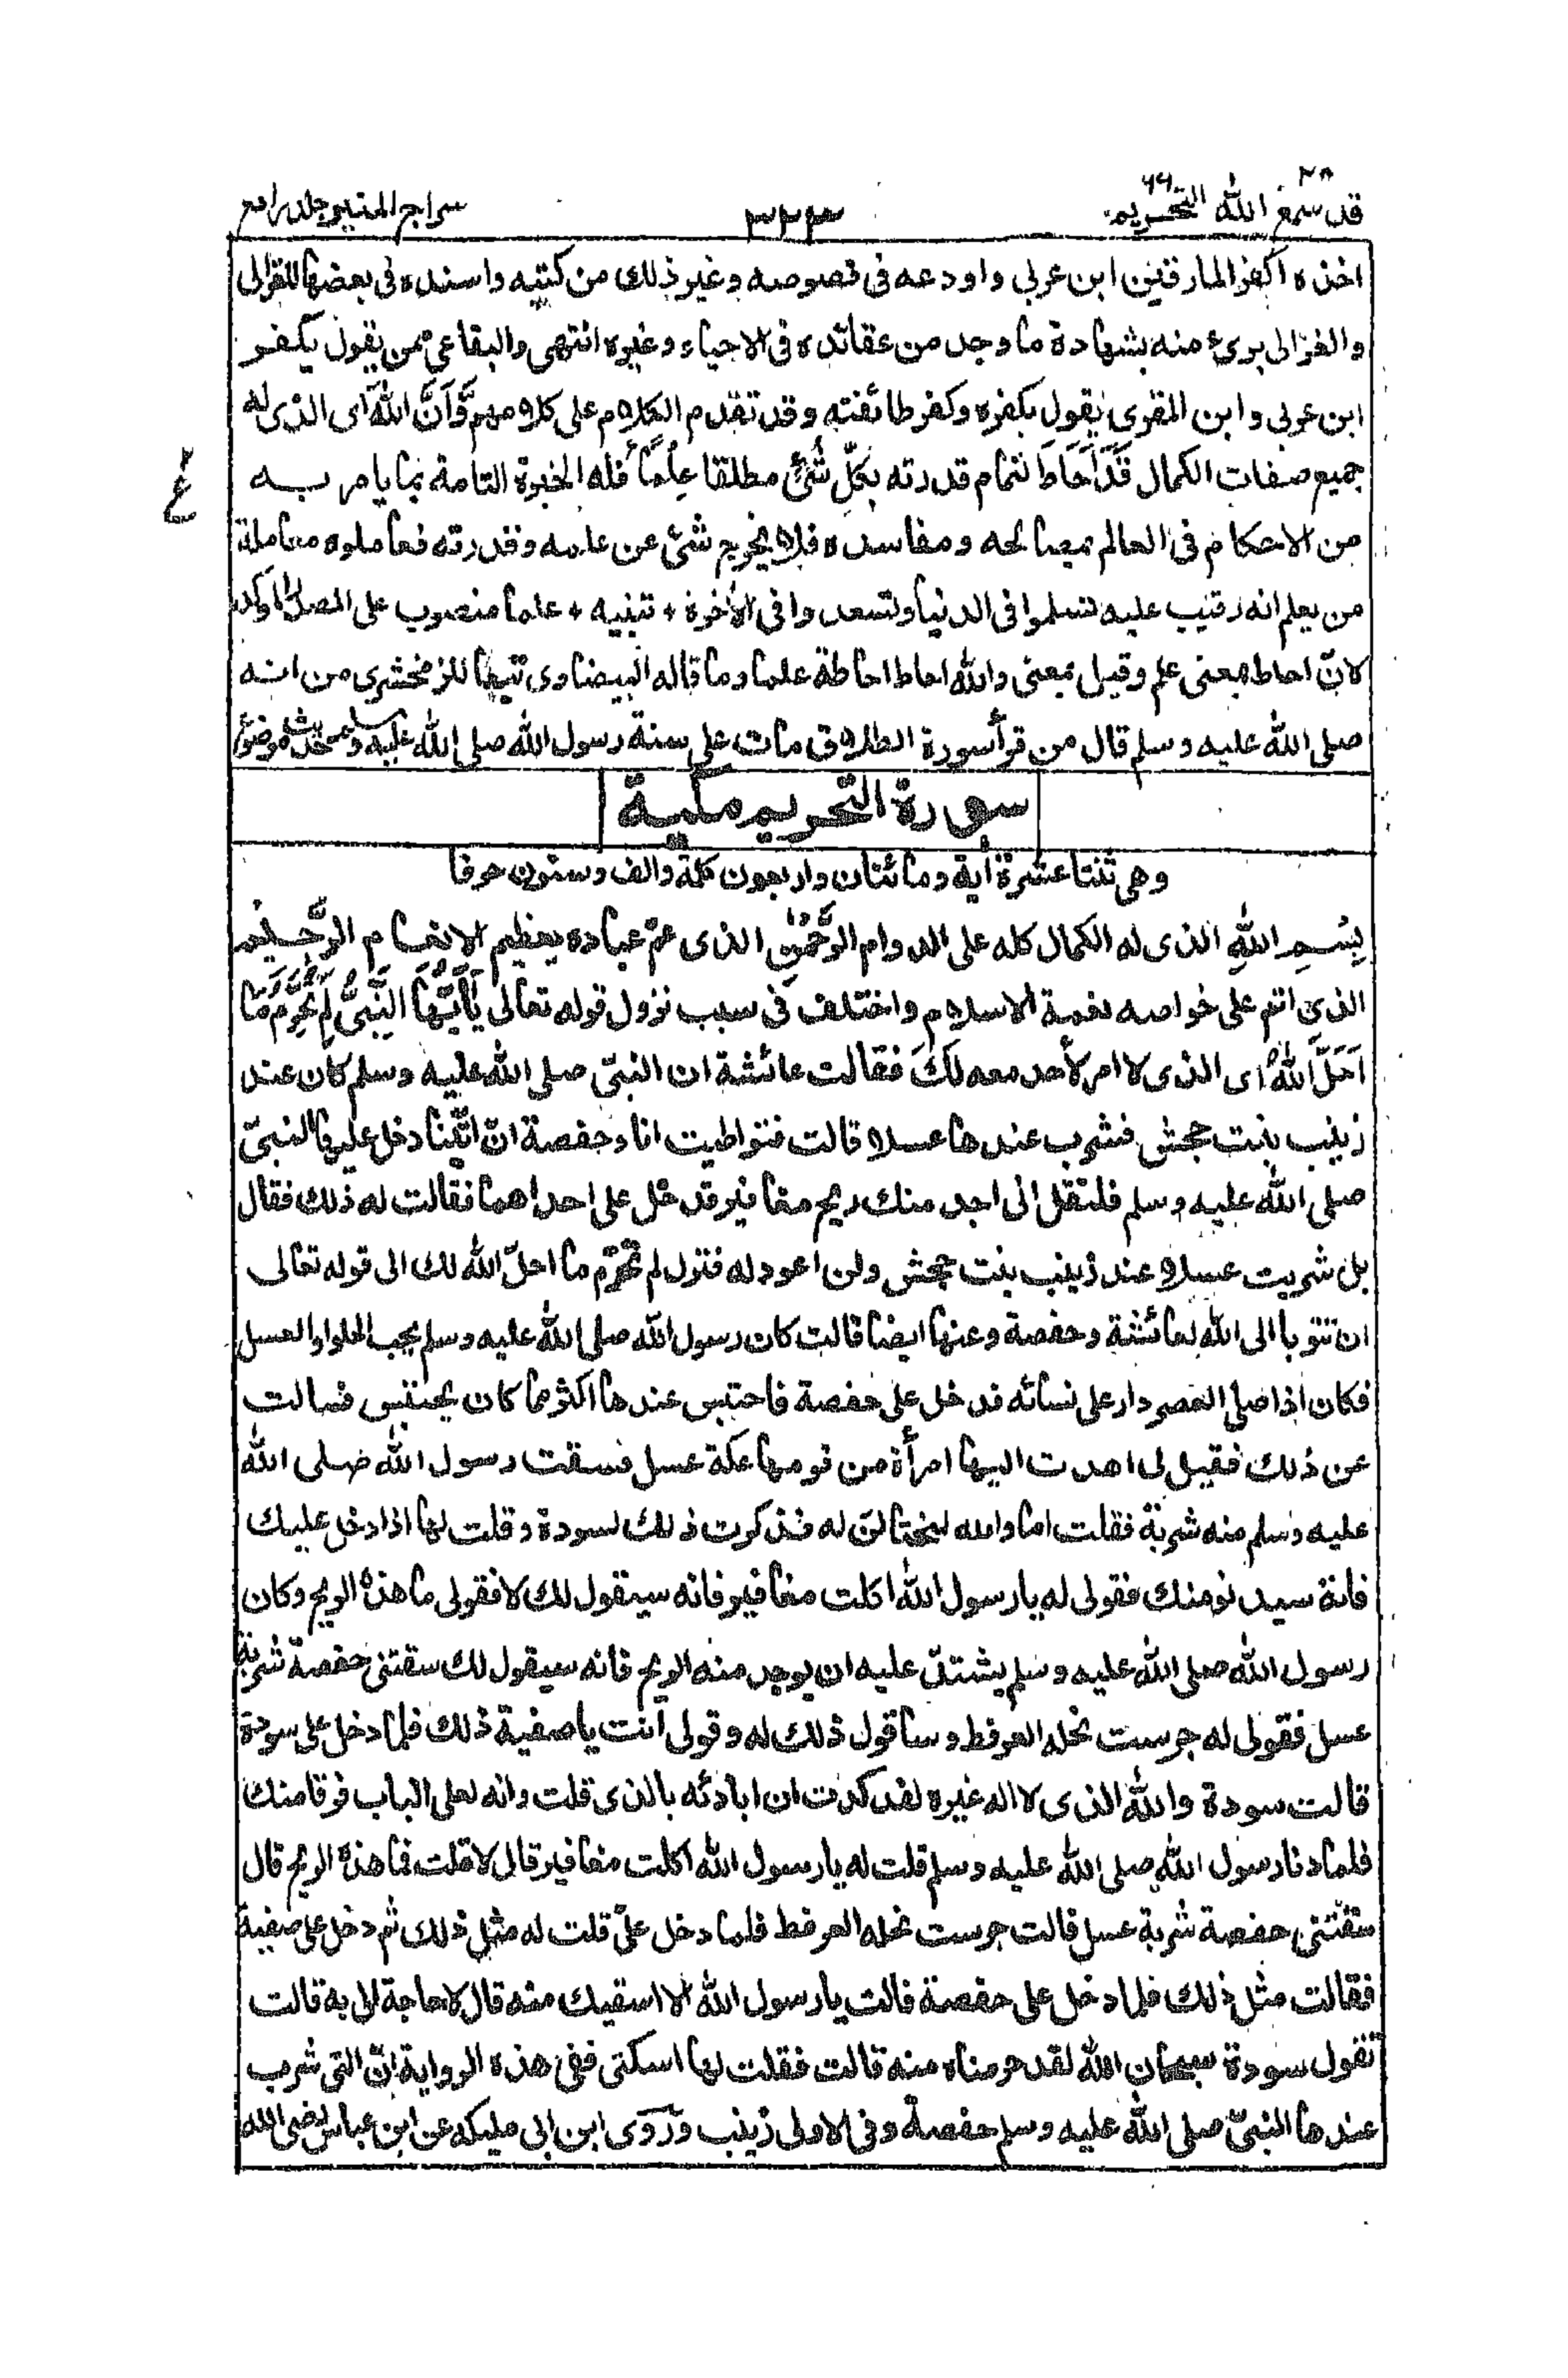 قد سمع الله ٢٨ التحريم ٦٦
٣٢٣
سراج المنير جلد رابع
اخذه اكفر المارقين ابن عربي واودعه في فصوصه وغير ذلك من كتبه واسنده في بعضها للغزالى
والغزالى برىء منه بشهادة ما وجد من عقائده في الاحياء وغيره انتهى والبقاعي ممن يقول بكفر
ابن عربي وابن المقرى يقول بكفره وكفر طائفته وقد تقدم الكلام على كلامهم وَّاَنَّ اللّٰهَ اى الذى له
جميع صفات الكمال قَدْ اَحَاطَ لتمام قدرته بِكُلِّ شَىْءٍ مطلقا عِلْمًا فله الخبرة التامة بما يامر به
من الاحكام في العالم بمصالحه ومفاسده فلا يخرج شئ عن علمه وقدرته فعاملوه معاملة
من يعلم انه رقيب عليه تسلموا في الدنيا وتسعدوا في الآخرة + تنبيه + علما منصوب على المصدر المؤكد
لانّ احاط بمعنى علم وقيل بمعنى والله احاط احاطة علما وما قاله البيضاوى تبعا للزمخشرى من انه
صلى الله عليه وسلم قال من قرأ سورة الطلاق مات على سنة رسول الله صلى الله عليه وسلم حديث موضوع
ع
سورة التحريم مكية
وهى ثنتا عشرة آية ومائتان واربعون كلمة والف وستون حرفا
بِسْمِ اللّٰهِ الذى له الكمال كله على الدوام الرَّحْمٰنِ الذى عمّ عباده بعظيم الانعام الرَّحِيْمِ
الذى اتم على خواصه نعمة الاسلام واختلف في سبب نزول قوله تعالى يٰٓاَيُّهَا النَّبِىُّ لِمَ تُحَرِّمُ مَآ
اَحَلَّ اللّٰهُ اى الذى لا امر لأحد معه لَكَ فقالت عائشة ان النبىّ صلى الله عليه وسلم كان عند
زينب بنت جحش فشرب عندها عسلا قالت فتواطيت انا وحفصة انّ ايّتنا دخل عليها النبىّ
صلى الله عليه وسلم فلتقل انى اجد منك ريح مغافير فدخل على احداهما فقالت له ذلك فقال
بل شربت عسلا عند زينب بنت جحش ولن اعود له فنزل لم تحرّم ما احلّ الله لك الى قوله تعالى
ان تتوبا الى الله لعائشة وحفصة وعنها ايضا قالت كان رسول الله صلى الله عليه وسلم يحب الحلوا والعسل
فكان اذا صلى العصر دار على نسائه فدخل على حفصة فاحتبس عندها اكثر مما كان يحتبس فسالت
عن ذلك فقيل لى اهدت اليها امرأة من قومها عكة عسل فسقت رسول الله صلى الله
عليه وسلم منه شربة فقلت اما والله لنحتالنّ له فذكرت ذلك لسودة وقلت لها اذا دخل عليك
فانه سيدنو منك فقولى له يا رسول الله اكلت مغافير فانه سيقول لك لا فقولى ما هذه الريح وكان
رسول الله صلى الله عليه وسلم يشتدّ عليه ان يوجد منه الريح فانه سيقول لك سقتنى حفصة شربة
عسل فقولى له جرست نحله العرفط وساقول ذلك له وقولى انت يا صفية ذلك فلما دخل على سودة
قالت سودة والله الذى لا اله غيره لقد كدت ان ابادئه بالذى قلت وانه لعلى الباب فرقا منك
فلما دنا رسول الله صلى الله عليه وسلم قلت له يا رسول الله اكلت مغافير قال لا قلت فما هذه الريح قال
سقتنى حفصة شربة عسل قالت جرست نحله العرفط فلما دخل علىّ قلت له مثل ذلك ثم دخل على صفية
فقالت مثل ذلك فلما دخل على حفصة قالت يا رسول الله الا اسقيك منه قال لا حاجة لى به قالت
تقول سودة سبحان الله لقد حرمناه منه قالت فقلت لها اسكتى ففى هذه الرواية انّ التى شرب
عندها النبىّ صلى الله عليه وسلم حفصة وفى الاولى زينب وروى ابن ابى مليكه عن ابن عباس رضى الله